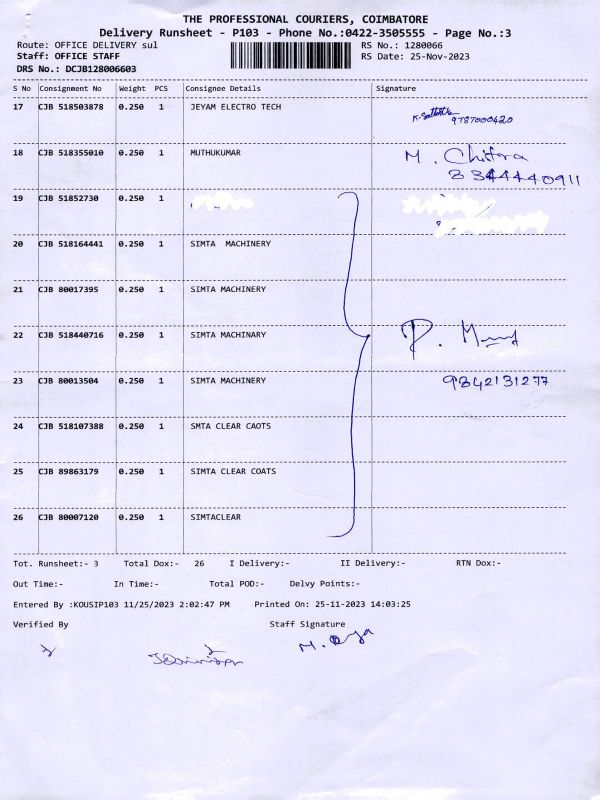 THE PROFESSIONAL COURIERS, COIMBATORE
Delivery Runsheet - P103 - Phone No.:0422-3505555 - Page No.:3
Route: OFFICE DELIVERY sul RS No.: 1280066
Staff: OFFICE STAFF RS Date: 25-Nov-2023
DRS No.: DCJB128006603
S No Consignment No Weight PCS Consignee Details Signature
17 CJB 518503878 0.250 1 JEYAM ELECTRO TECH
9787000420
18 CJB 518355010 0.250 1 MUTHUKUMAR M. Chitra
8344440911
19 CJB 51852730 0.250 1
20 CJB 518164441 0.250 1 SIMTA MACHINERY
21 CJB 80017395 0.250 1 SIMTA MACHINERY
22 CJB 518440716 0.250 1 SIMTA MACHINARY P.
23 CJB 80013504 0.250 1 SIMTA MACHINERY 9842131277
24 CJB 518107388 0.250 1 SMTA CLEAR CAOTS
25 CJB 89863179 0.250 1 SIMTA CLEAR COATS
26 CJB 80007120 0.250 1 SIMTACLEAR
Tot. Runsheet:- 3 Total Dox:- 26 I Delivery:- II Delivery:- RTN Dox:-
Out Time:- In Time:- Total POD:- Delvy Points:-
Entered By :KOUSIP103 11/25/2023 2:02:47 PM Printed On: 25-11-2023 14:03:25
Verified By Staff Signature